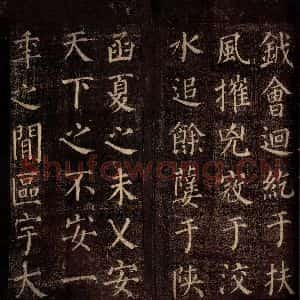 鉞會迴紇于扶
風摧兇寇于洨
水追餘孽于陝
函夏之未乂安
天下之不安一
秊之間區宇大
Shufawang.CN